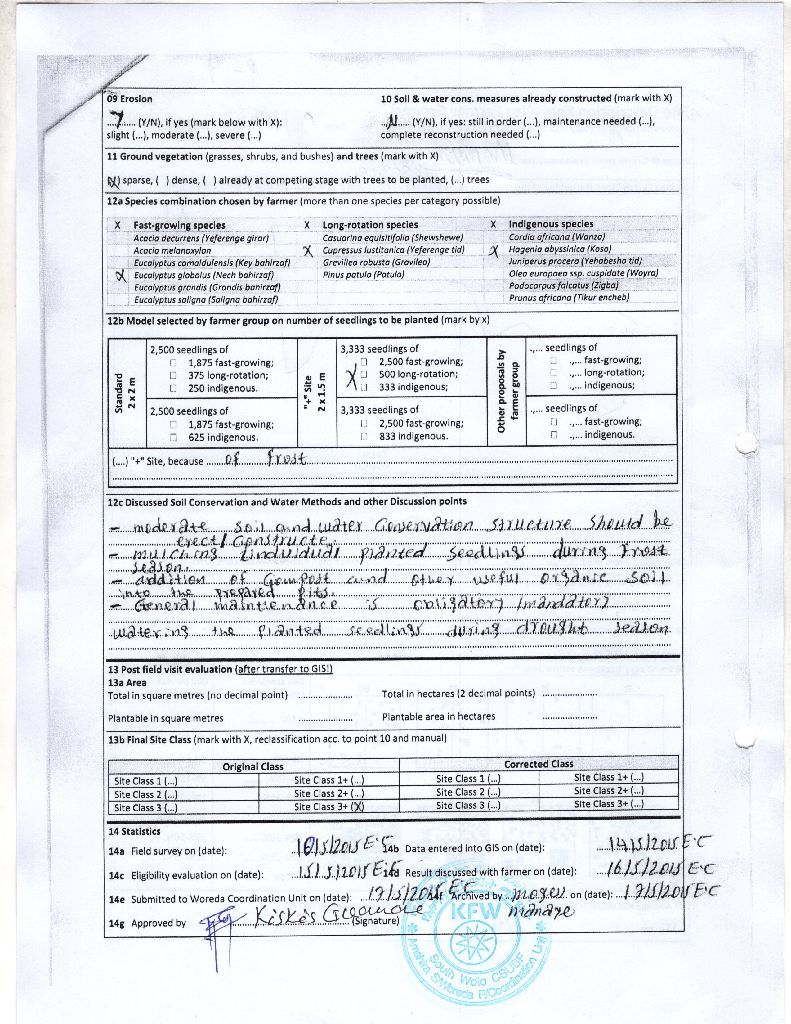 09 Erosion
10 Soil & water cons. measures already constructed (mark with X)
....... (Y/N), if yes (mark below with X):
slight (...), moderate (...), severe (...)
..N.... (Y/N), if yes: still in order (...), maintenance needed (...),
complete reconstruction needed (...)
11 Ground vegetation (grasses, shrubs, and bushes) and trees (mark with X)
(X) sparse, ( ) dense, ( ) already at competing stage with trees to be planted, (...) trees
12a Species combination chosen by farmer (more than one species per category possible)
X Fast-growing species
Acacia decurrens (Yeferenge girar)
Acacia melanoxylon
Eucalyptus camaldulensis (Key bahirzaf)
X Eucalyptus globolus (Nech bahirzaf)
Eucalyptus grandis (Grandis bahirzaf)
Eucalyptus saligna (Saligna bahirzaf)
X Long-rotation species
Casuarina equisitifolia (Shewshewe)
X Cupressus lustitanica (Yeferenge tid)
Grevillea robusta (Gravilea)
Pinus patula (Patula)
X Indigenous species
Cordia africana (Wanza)
X Hagenia abyssinica (Koso)
Juniperus procera (Yehabesho tid)
Olea europaea ssp. cuspidate (Woyra)
Podocarpus falcatus (Zigba)
Prunus africana (Tikur encheb)
12b Model selected by farmer group on number of seedlings to be planted (mark by x)
Standard
2 x 2 m
2,500 seedlings of
☐ 1,875 fast-growing;
☐ 375 long-rotation;
☐ 250 indigenous.
2,500 seedlings of
☐ 1,875 fast-growing;
☐ 625 indigenous.
"+" Site
2 x 1.5 m
3,333 seedlings of
☐ 2,500 fast-growing;
X ☐ 500 long-rotation;
☐ 333 indigenous;
3,333 seedlings of
☐ 2,500 fast-growing;
☐ 833 indigenous.
Other proposals by
farmer group
.,... seedlings of
☐ .,... fast-growing;
☐ .,... long-rotation;
☐ .,... indigenous;
.,... seedlings of
☐ .,... fast-growing;
☐ .,... indigenous.
(....) "+" Site, because ...... of frost
12c Discussed Soil Conservation and Water Methods and other Discussion points
- moderate soil and water Conservation structure should be
erect/ Constructe.
- mulching individual planted seedlings during frost
season.
- addition of Compost and other useful organic soil
into the prepared pits.
- General maintenance is obligatory /mandatory
watering the planted seedlings during drought season
13 Post field visit evaluation (after transfer to GIS!)
13a Area
Total in square metres (no decimal point) ....................
Total in hectares (2 decimal points) ....................
Plantable in square metres ....................
Plantable area in hectares ....................
13b Final Site Class (mark with X, reclassification acc. to point 10 and manual)
Original Class
Corrected Class
Site Class 1 (...) Site Class 1+ (...) Site Class 1 (...) Site Class 1+ (...)
Site Class 2 (...) Site Class 2+ (...) Site Class 2 (...) Site Class 2+ (...)
Site Class 3 (...) Site Class 3+ (X) Site Class 3 (...) Site Class 3+ (...)
14 Statistics
14a Field survey on (date): 10/5/2015 E.C
14b Data entered into GIS on (date): 14/5/2015 E.C
14c Eligibility evaluation on (date): 15/5/2015 E.C
14d Result discussed with farmer on (date): 16/5/2015 E.C
14e Submitted to Woreda Coordination Unit on (date): 17/5/2015 E.C
14f Archived by on (date): 17/5/2015 E.C
14g Approved by (Signature)
KFW
South Wolo CSUBF